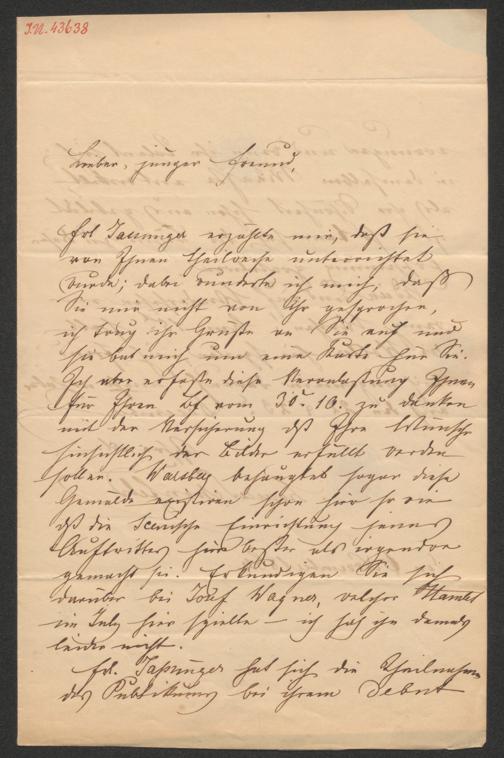 I.N. 43638
Lieber, junger Freund,
Frl Tassinger erzählte mir, daß sie
von Ihnen theilweise unterrichtet
wurde; dabei wunderte ich mich, daß
Sie mir nicht von ihr gesprochen,
ich trug ihr Grüße an Sie auf und
sie bat mich um eine Karte für Sie.
Ich aber erfaße diese Veranlassung Ihnen
für Ihren Bf vom 30t. 10. zu danken
mit der Versicherung dß Ihre Wünsche
hinsichtlich der Bilder erfüllt werden
sollen. behauptet sogar diese
Gemälde existiren schon hier so wie
dß die Scenische Einrichtung jenes
Auftrittes hier besser als irgendwo
gemacht sei. Erkundigen Sie sich
darüber bei Josef Wagner, welcher Hamlet
im July hier spielte – ich sah ihn damals
leider nicht.
Frl. Tassinger hat sich die Theilnahme
des Publikums bei ihrem Debut